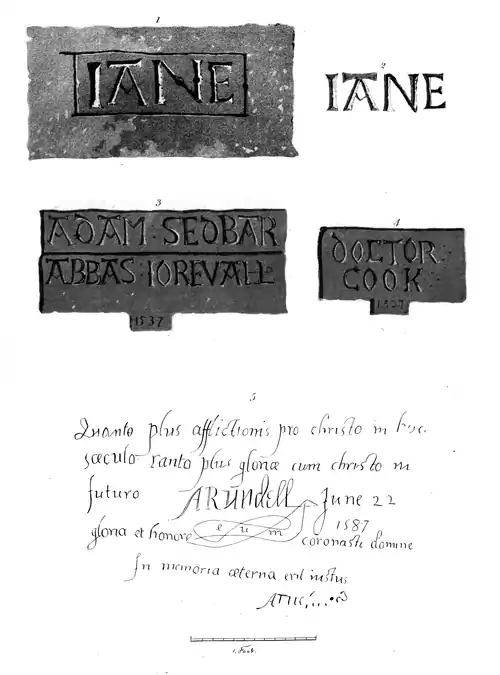 1
IANE
2
IANE
3
ADAM : SEDBAR
ABBAS : IOREVALL
1537
4
DOCTOR
COOK
1537
5
Quanto plus afflictionis pro christo in hoc
sæculo Tanto plus gloriæ cum christo in
futuro ARUNDELL June 22
1587
gloria et honore e u m coronasti domine
In memoria æterna erit iustus
1. Foot.